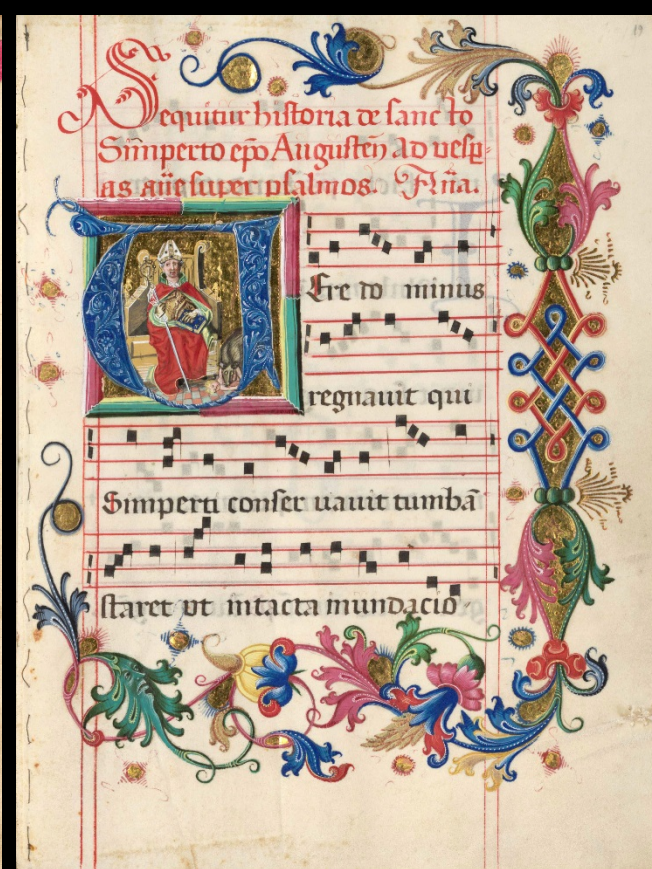 Sequitur historia de sancto
Simperto epo Augusten ad vesp
as añe super psalmos. Añа.
VEre dominus
regnauit qui
Simperti conseruauit tumbā
staret vt intacta inundacio
19